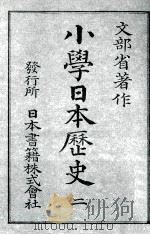 文部省著作
小學日本歷史 二
發行所 日本書籍株式會社